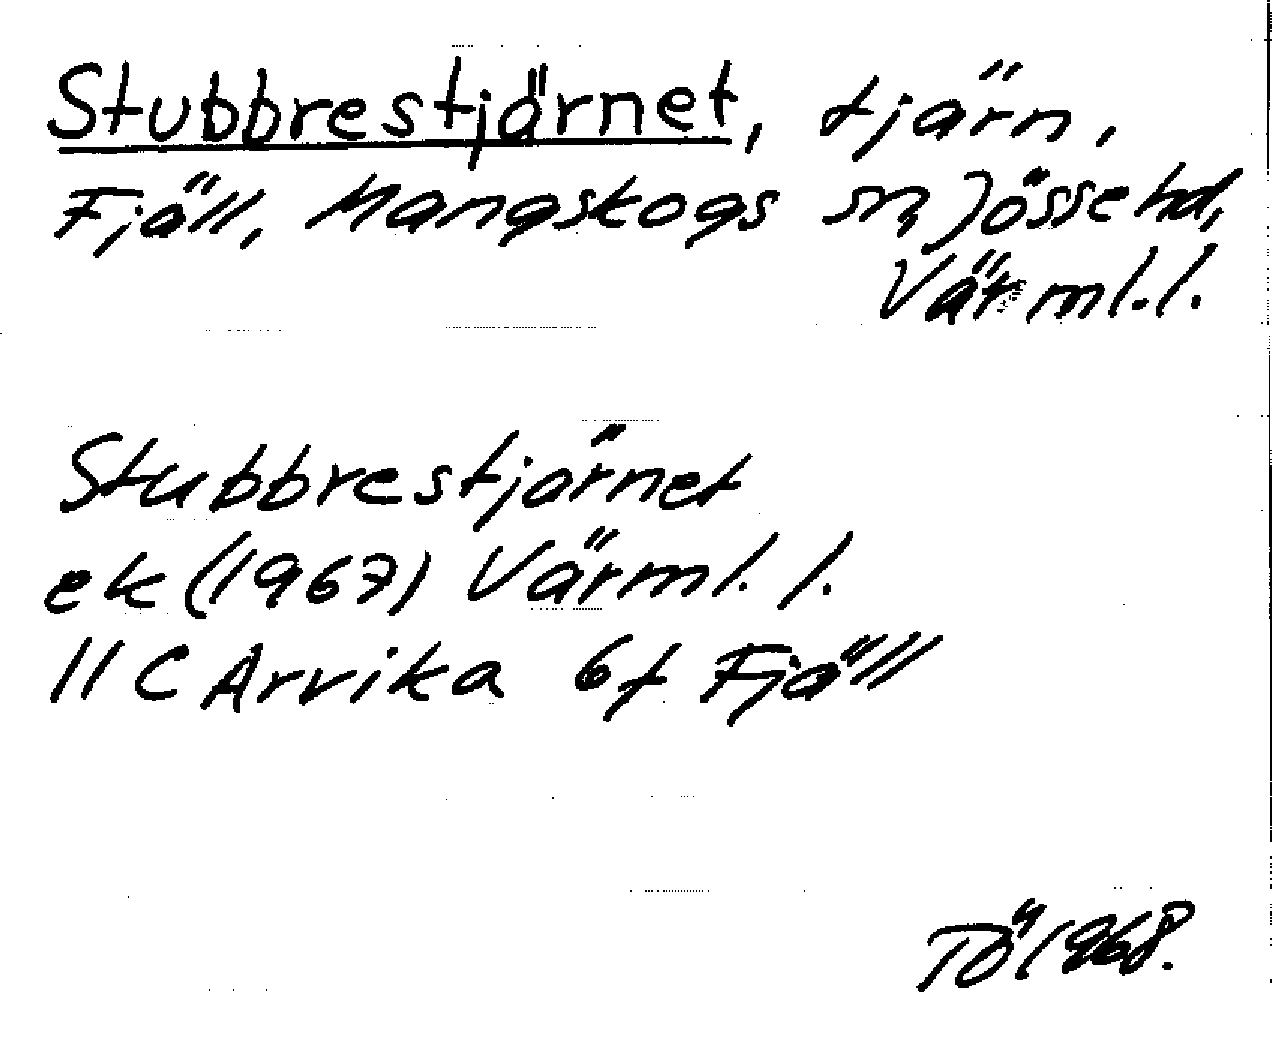 Stubbrestjärnet, tjärn,
Fjäll, Mangskogs sn, Jösse hd,
Värml. l.
Stubbrestjärnet
ek (1967) Värml. l.
11 C Arvika 6f Fjäll
TÖ 1968.